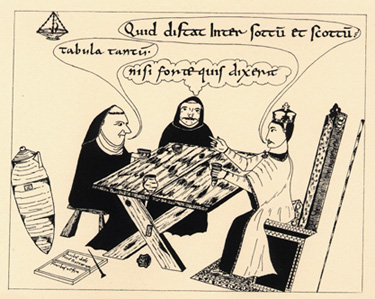 Quid distat inter sottū et scottū?
tabula tantū.
nisi forte quis dixerit